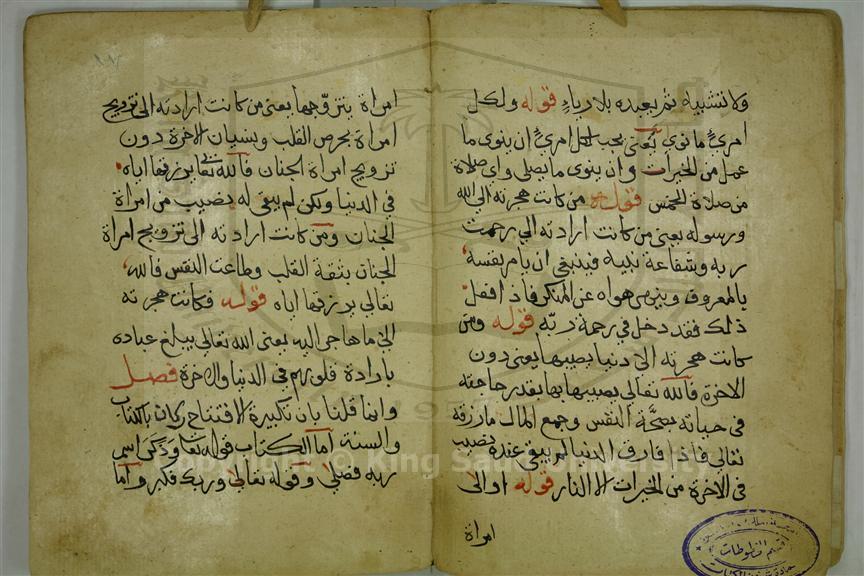 ولا تشبيه ثم يعبده بلا رياء قوله ولكل
امرئ ما نوى يعنى يجب لكل امرئ ان ينوى ما
عمل من الخيرات وان ينوى ما يصلى واى صلاة
من صلاة الخمس قوله من كانت هجرته الى الله
ورسوله يعنى من كانت ارادته الى رحمت
ربه وشفاعة نبيه فينبغى ان يامر نفسه
بالمعروف وينهى هواه عن المنكر فاذا فعل
ذلك فقد دخل في رحمة ربه قوله ومن
كانت هجرته الا دنيا يصيبها يعنى دون
الاخرة فالله تعالى يصيبها بها بقدر حاجته
في حياته بصحة النفس وجمع المال مارزقه
تعالى فاذا فارق الدنيا لم يبقى عنده نصيب
في الاخرة من الخيرات الا النار قوله او الى
امراة
امراة يتزوجها يعنى من كانت ارادته الى تزويج
امراة بحرص القلب وبنسيان الاخرة دون
تزويج امراة الجنان فالله تعا يرزقها اياه
في الدنيا ولكن لم يبقى له نصيب من امراة
الجنان ومن كانت ارادته الى تزويج امراة
الجنان بثقة القلب وطاعت النفس فالله
تعالى يرزقها اياه قوله فكانت هجرته
الى ما هاجر اليه يعنى الله تعالى يبلغ عباده
بارادة قلوبهم في الدنيا والاخرة فصل
وانما قلنا بان تكبيرة الافتتاح ركن بالكتاب
والسنة اما الكتاب قوله تعا وذكر اسم
ربه فصلى وقوله تعالى وربك فكبر واما
Copyright © King Saud University